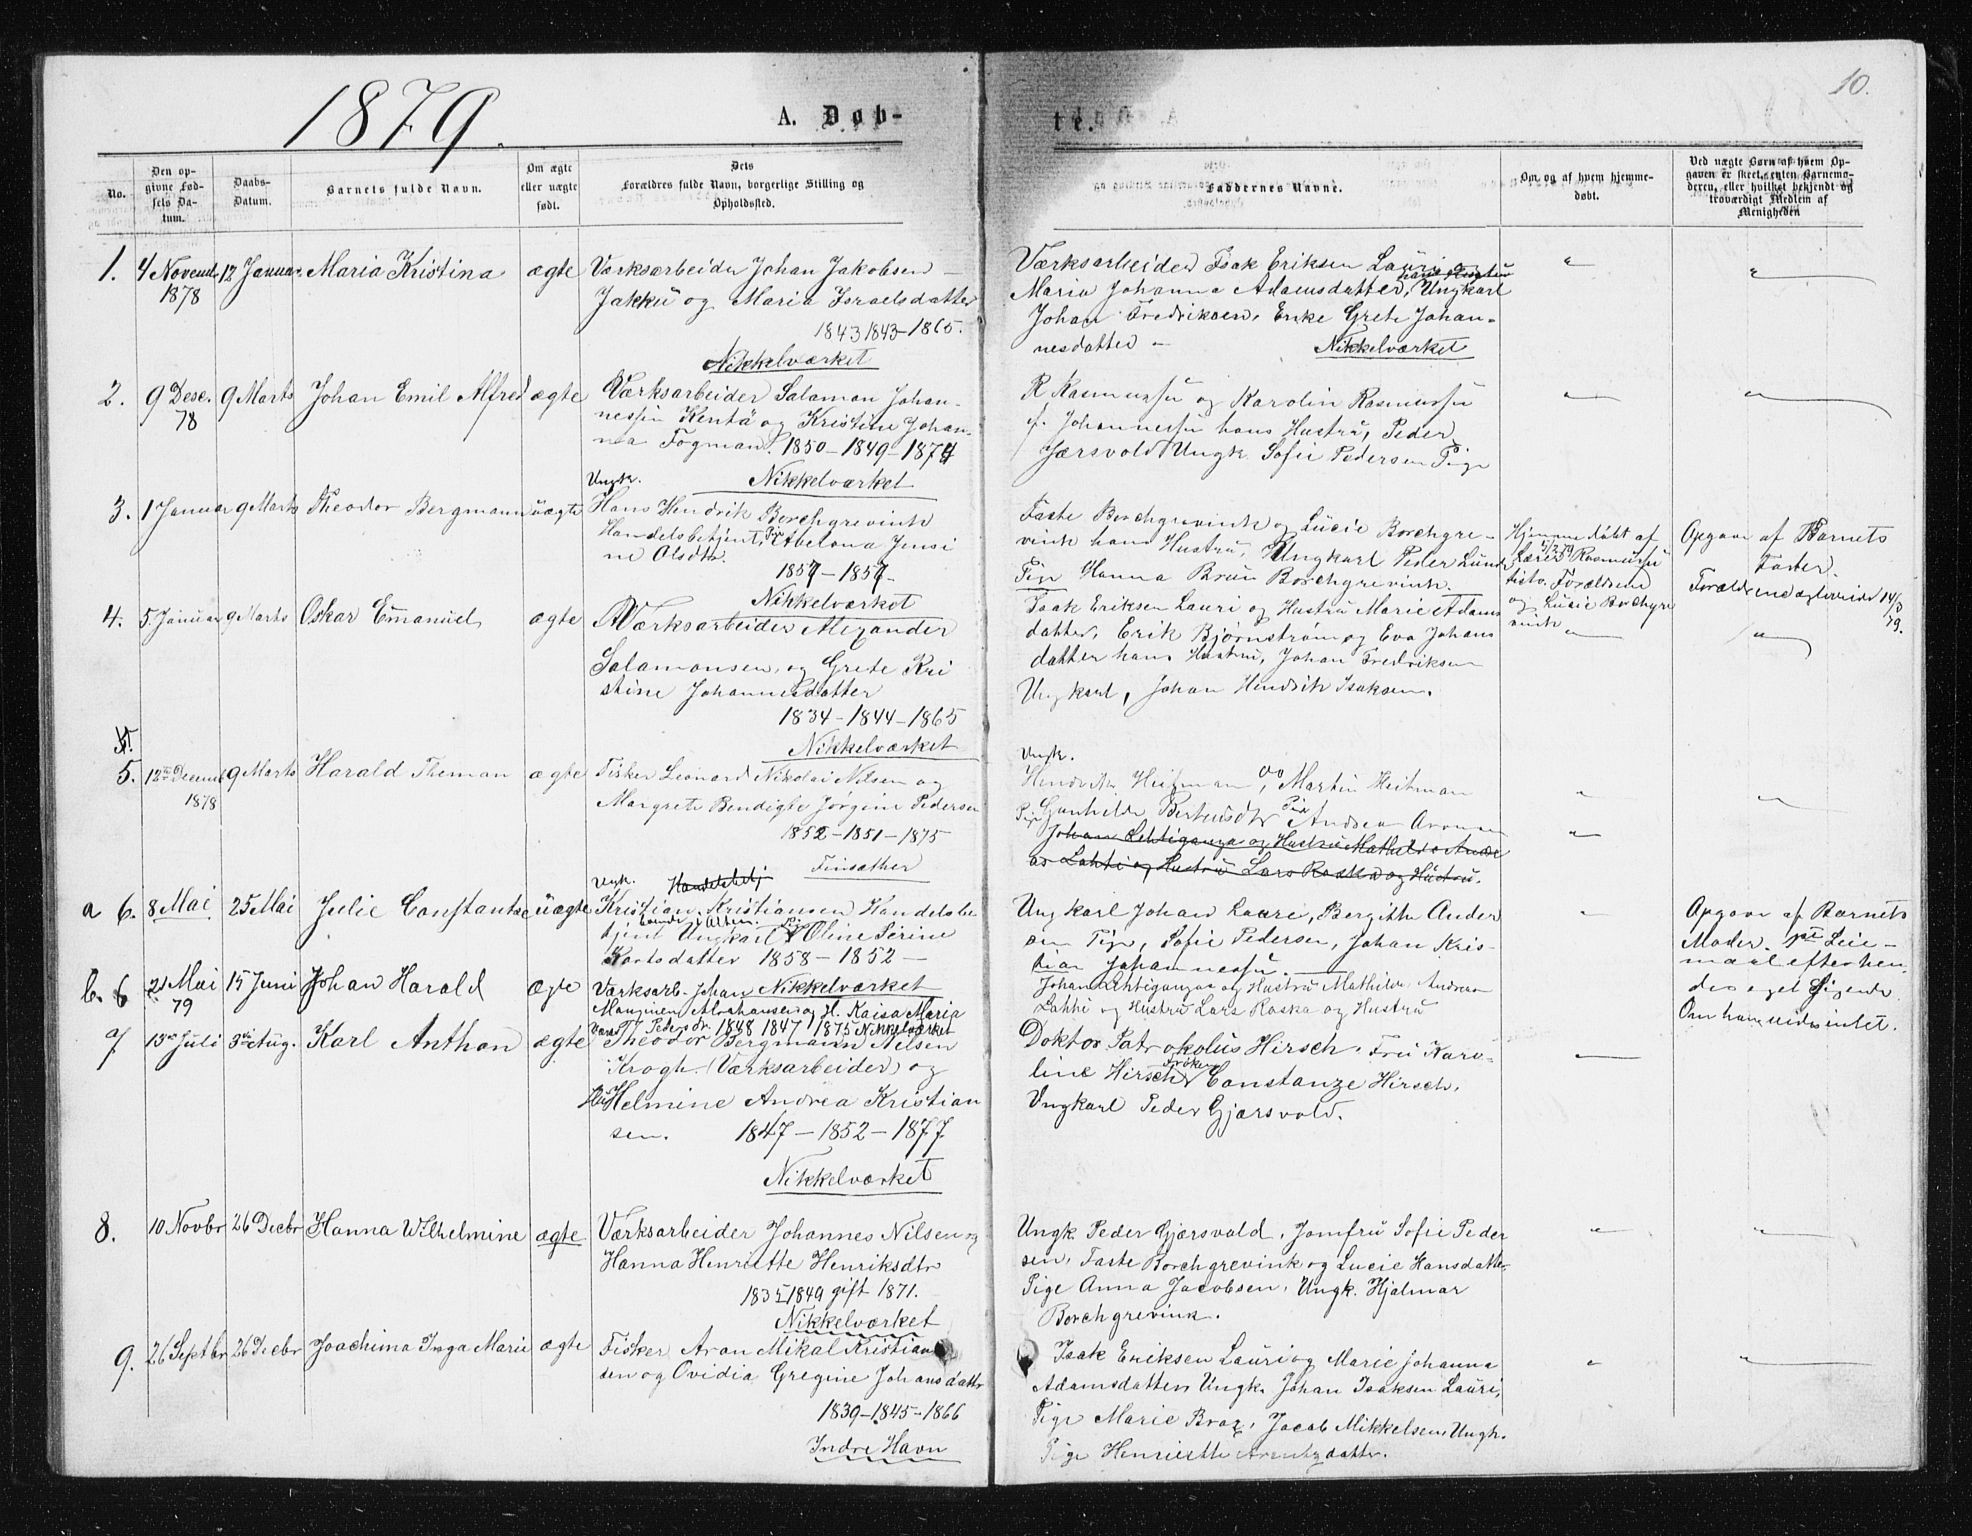 1879.
A. Døb-
te.
10.
No.
Den op-
givne Fød-
sels Da-
tum.
Daabs-
Datum.
Barnets fulde Navn.
Om ægte
eller uægte
født.
Dets
Forældres fulde Navn, borgerlige Stilling og
Opholdssted.
Faddernes Navne.
Om og af hvem hjemme-
døbt.
Ved uægte Børn af hvem Op-
gaven er skeet, enten Barnemo-
deren, eller hvilket bekjendt og
troværdigt Medlem af
Menigheden
1. 4 Novemb 12 Januar Maria Kristina ægte Værksarbeider Johan Jakobsen
1878 Jakku og Maria Israelsdatter
1843 1843-1865.
Nikkelværket
Værksarbeider Isak Eriksen Lauri og
hans Hustru
Maria Johanna Adamsdatter, Ungkarl
Johan Fredriksen, Enke Grete Johan-
nesdatter -
Nikkelværket
2. 9 Dese. 9 Marts Johan Emil Alfred ægte Værksarbeider Salamon Johan-
78 nessen Kentä og Kristine Johan-
na Fogman. 1850-1849-1874
Nikkelværket
R Rasmussen og Karolin Rasmussen
f. Johannessen hans Hustru, Peder
Gjærsvold Ungk. Sofie Pedersen Pige
Ungk.
3. 1 Januar 9 Marts Theodor Bergmann uægte Hans Hendrik Borchgrevink
Handelsbetjent, Pige Abelona Jensi
ne Olsdtr.
1857-1857
Nikkelværket
Faste Borchgrevink og Lucie Borchgre-
vink hans Hustru, Ungkarl Peder Lund
Pige Hanna Brun Borchgrevink.
Hjemmedöbt af
5/2 79
Lærer Rasmussen
testo. Forældrene
og Lucie Borchgre
vink
Opgave af Barnets
Fader.
Forældrene ægteviede 14/3
79.
4. 5 Januar 9 Marts Oskar Emanuel ægte Værksarbeider Alexander
Salamonsen, og Grete Kri
stine Johannesdatter
1834-1844-1865
Nikkelværket
Isak Eriksen Lauri og Hustru Marie Adams
datter, Erik Bjørnstrøm og Eva Johans
datter hans Hustru, Johan Fredriksen
Ungkarl, Johan Hendrik Isaksen.
5. 12te Decemb 9 Marts Harald Theman ægte Fisker Leonard Nikolai Nilsen og
1878 Margrete Bendigte Jørgine Pedersen
1852-1851-1875
Ungk.
Hendrik Heitman, og Martin Heitman
Pige Gunhilde Berntsdtr Pige Andrea Aronsen
Johan Lehtiganga og Hustru Mathilde Andre
as Lahti og Hustru Lars Raska og Hustru.
Ungk. Handelsbetj
a 6. 8 Mai 25 Mai Julie Constantse uægte Kristian Kristiansen Handelsbe
tjent Ungkarl Pige Oline Perine
Kortsdatter 1858-1852-
Nikkelværket
Ungkarl Johan Laare, Bergitte Ander
sen Pige, Sofie Pedersen, Johan Kris-
tian Johannessen.
Opgave af Barnets
Moder. 1ste Leie-
maal efter hen
des eget Sigende
Om ham vides intet.
b. 6 21 Mai 15 Juni Johan Harald ægte Værksarb. Johan
79 Abrahamsen og H. Kaisa Maria
Pedersdr. 1848 1847 1875 Nikkelværket
Johan Lehtiganga og Hustru Mathilde Andreas
Lahti og Hustru Lars Raska og Hustru
7 13de Juli 3die Aug. Karl Anthon ægte Theodor Bergmann Nilsen
Krogh (Værksarbeider) og
Hu Helmine Andrea Kristian
sen. 1847-1852-1877.
Nikkelværket
Doktor Patrokolus Hirsch, Fru Karo-
line Hirsch, Frøken Constanze Hirsch,
Ungkarl Peder Gjærsvold.
8. 10 Novbr 26 Decbr Hanna Wilhelmine ægte Værksarbeider Johannes Nilsen og
Hanna Henriette Henriksdtr
1835 1849 gift 1871.
Nikkelværket
Ungk. Peder Gjærsvold, Jomfru Sofie Peder
sen, Faste Borchgrevink og Lucie Hansdatter
Pige Anna Jacobsen, Ungk. Hjalmar
Borchgrevink.
9. 26 Septbr 26 Decbr Joachima Inga Marie ægte Fisker Aron Mikal Kristian
sen og Ovidia Gregine Johansdattr
1839-1845-1866
Indre Havn
Isak Eriksen Lauri og Marie Johanna
Adamsdatter, Ungk. Johan Isaksen Lauri,
Pige Marie Brox, Jacob Mikkelsen, Ungk.
Pige Henriette Arentzdatter.